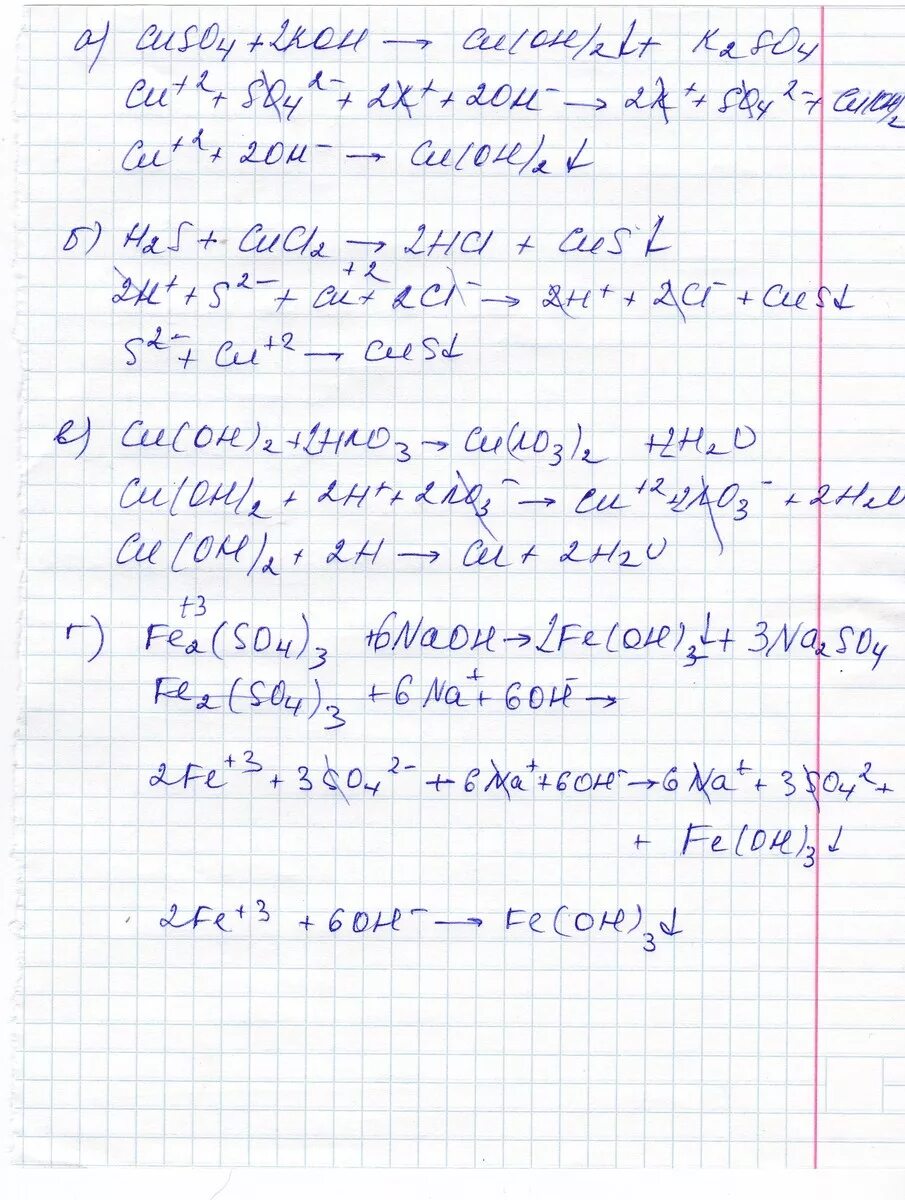 а) CuSO4 + 2KOH → Cu(OH)2↓ + K2SO4
Cu+2 + SO4 2- + 2K+ + 2OH- → 2K+ + SO4 2- + Cu(OH)2
Cu+2 + 2OH- → Cu(OH)2↓
б) H2S + CuCl2 → 2HCl + CuS↓
2H+ + S2- + Cu+2 + 2Cl- → 2H+ + 2Cl- + CuS↓
S2- + Cu+2 → CuS↓
в) Cu(OH)2 + 2HNO3 → Cu(NO3)2 + 2H2O
Cu(OH)2 + 2H+ + 2NO3- → Cu+2 + 2NO3- + 2H2O
Cu(OH)2 + 2H → Cu + 2H2O
г) Fe2+3(SO4)3 + 6NaOH → 2Fe(OH)3↓ + 3Na2SO4
Fe2(SO4)3 + 6Na+ + 6OH- →
2Fe+3 + 3SO4 2- + 6Na+ + 6OH- → 6Na+ + 3SO4 2 +
+ Fe(OH)3↓
2Fe+3 + 6OH- → Fe(OH)3↓